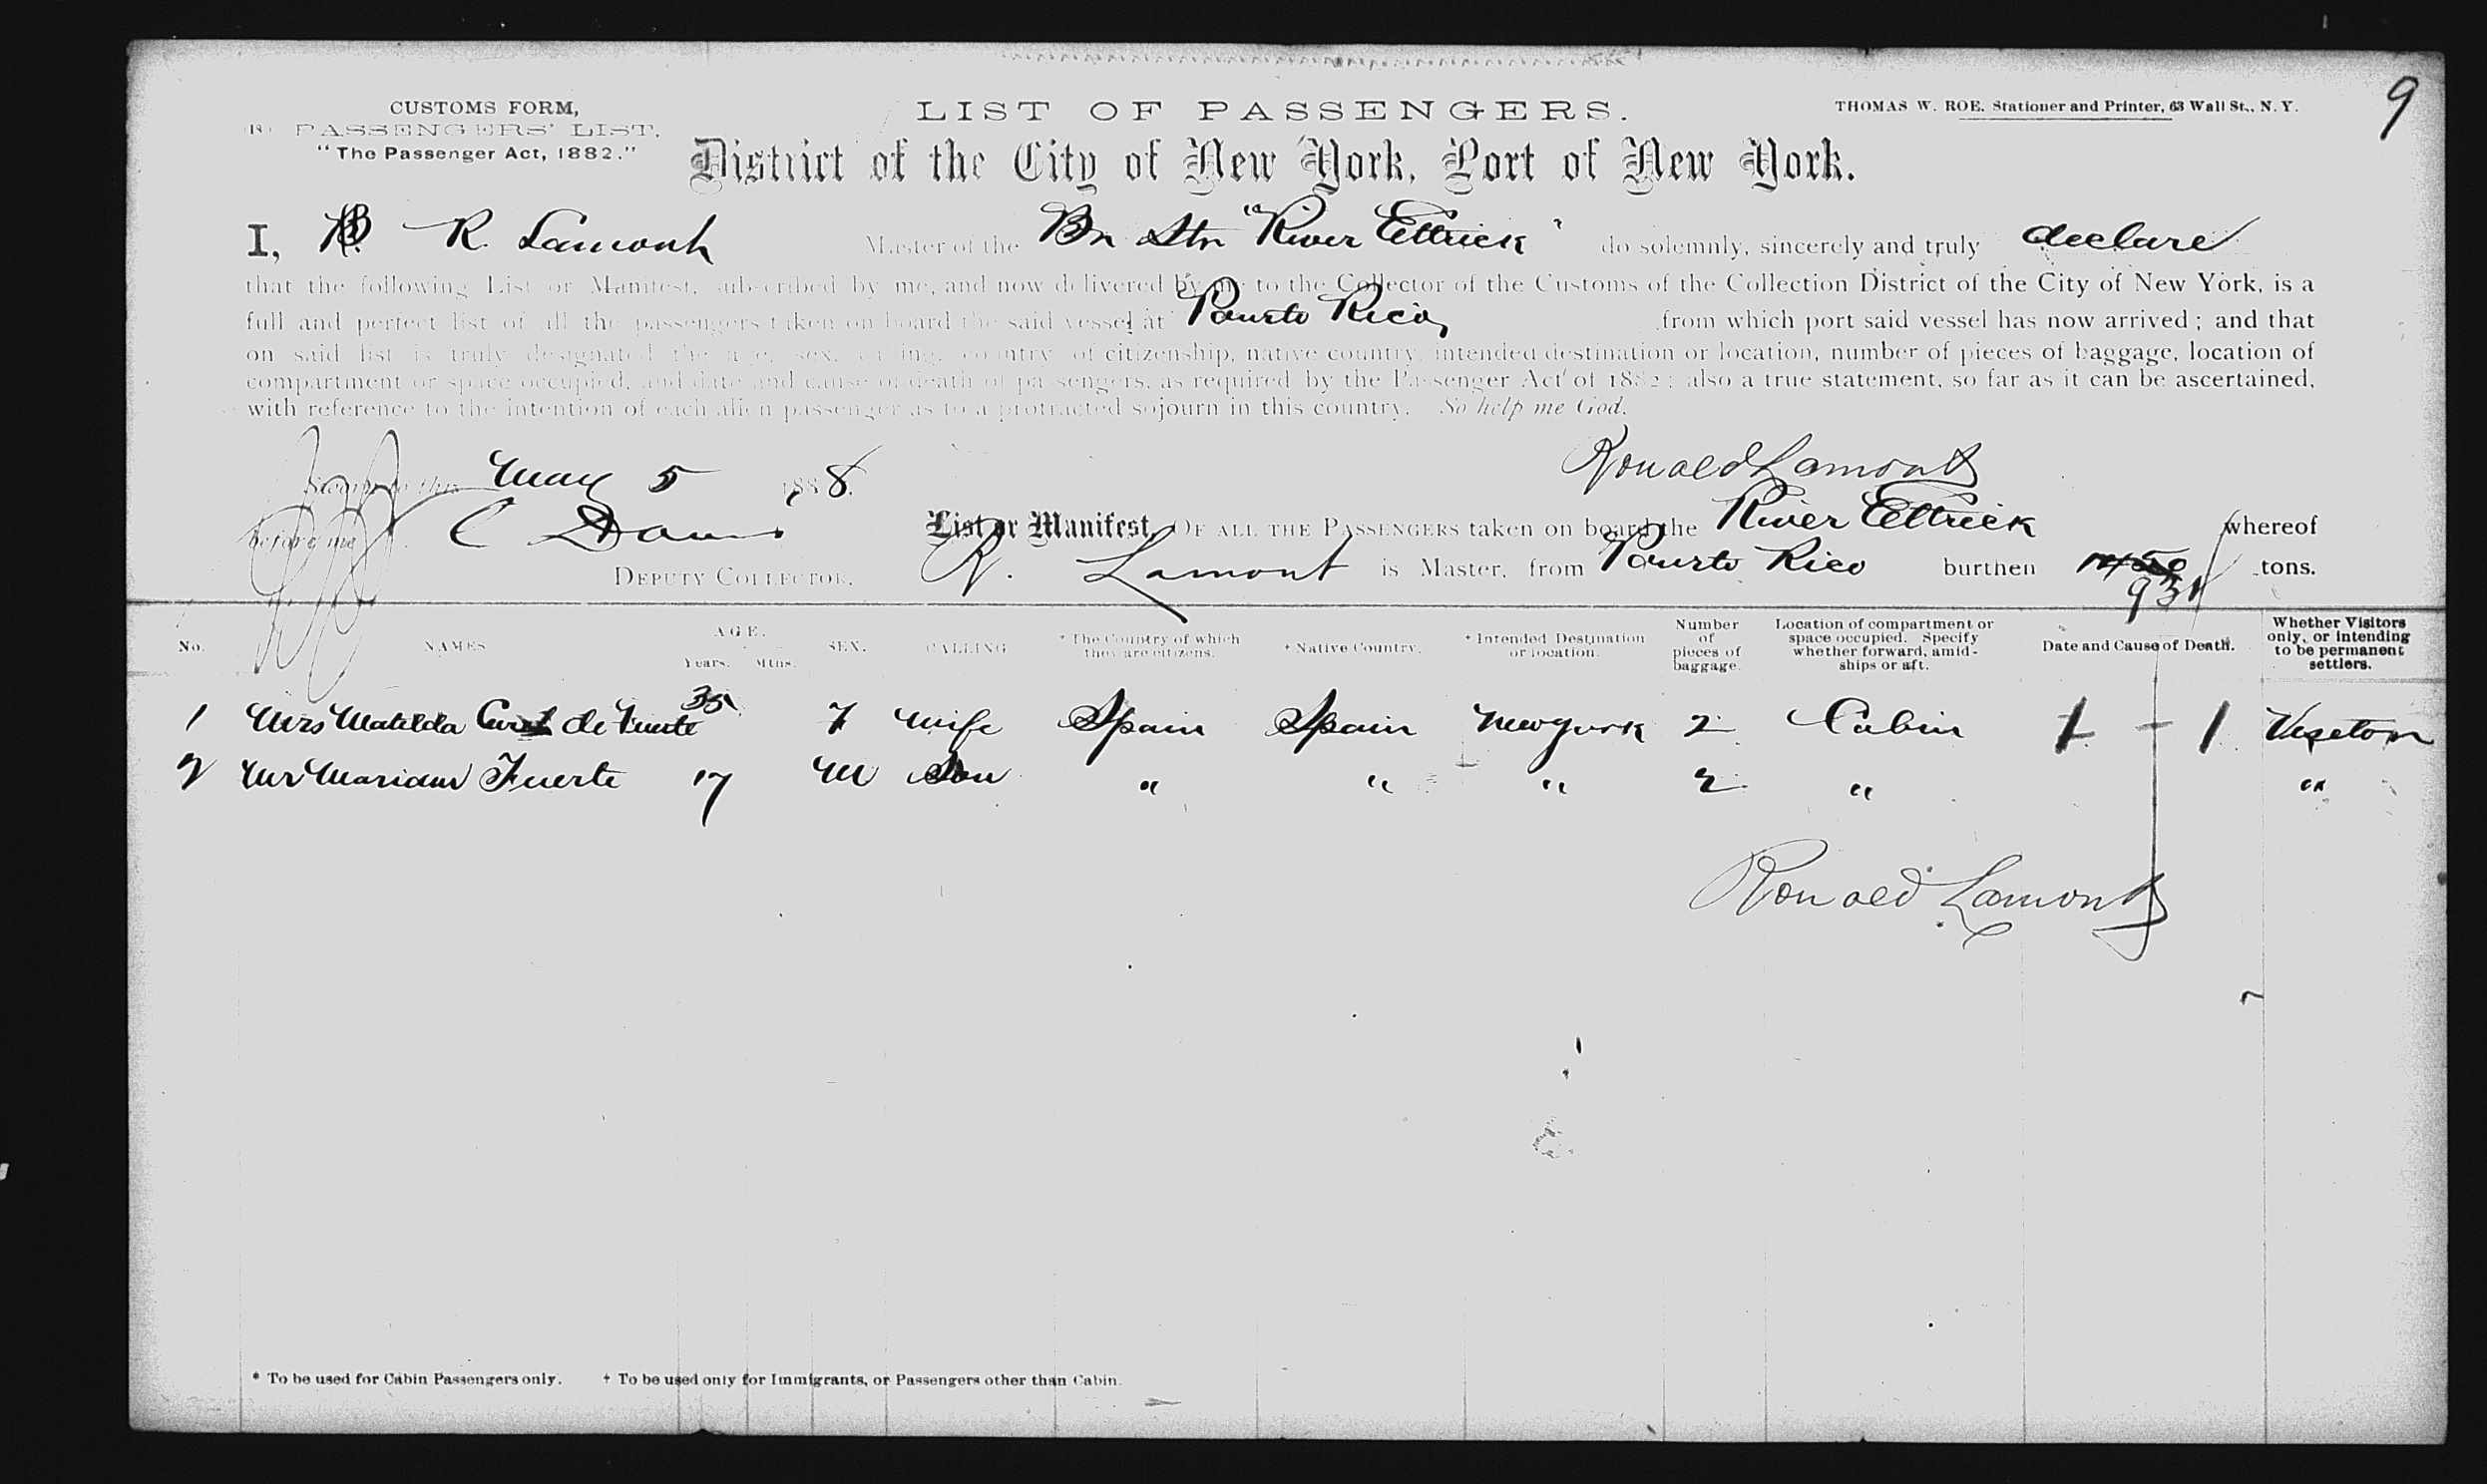 9
CUSTOMS FORM,
PASSENGERS' LIST.
"The Passenger Act, 1882."
LIST OF PASSENGERS.
THOMAS W. ROE, Stationer and Printer, 63 Wall St., N.Y.
District of the City of New York, Port of New York.
I, R. Lamont Master of the Br Str "River Ettrick" do solemnly, sincerely and truly declare
that the following List or Manifest, subscribed by me, and now delivered by me to the Collector of the Customs of the Collection District of the City of New York, is a
full and perfect list of all the passengers taken on board the said vessel at Pourto Rico, from which port said vessel has now arrived; and that
on said list is truly designated the age, sex, calling, country of citizenship, native country, intended destination or location, number of pieces of baggage, location of
compartment or space occupied, and date and cause of death of passengers, as required by the Passenger Act of 1882; also a true statement, so far as it can be ascertained,
with reference to the intention of each alien passenger as to a protracted sojourn in this country. So help me God.
Sworn to this May 5 1888. Ronald Lamont
before me C Davis List or Manifest OF ALL THE PASSENGERS taken on board the River Ettrick whereof
DEPUTY COLLECTOR. R. Lamont is Master, from Pourto Rico burthen tons.
931
No. NAMES AGE. Years. Mths. SEX. CALLING * The Country of which they are citizens. + Native Country. * Intended Destination or location. Number of pieces of baggage. Location of compartment or space occupied. Specify whether forward, amidships or aft. Date and Cause of Death. Whether Visitors only, or intending to be permanent settlers.
1 Mrs Matilda de Fuerte 35 F Wife Spain Spain New York 2 Cabin 1 - 1
2 Mr Fuerte 17 M Son " " " 2 " "
Ronald Lamont
* To be used for Cabin Passengers only. + To be used only for Immigrants, or Passengers other than Cabin.